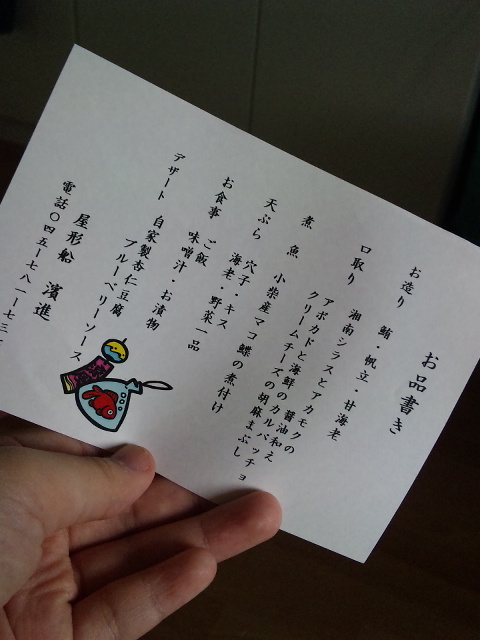 お品書き
お造り 鮪・帆立・甘海老
口取り 湘南シラスとアカモクの醤油和え
アボカドと海鮮のカルパッチョ
クリームチーズの胡麻まぶし
煮魚 小柴産マコ鰈の煮付け
天ぷら 穴子・キス
海老・野菜一品
お食事 ご飯
味噌汁・お漬物
デザート 自家製杏仁豆腐
ブルーベリーソース
屋形船 濱進
電話〇四五ー七八一ー七三